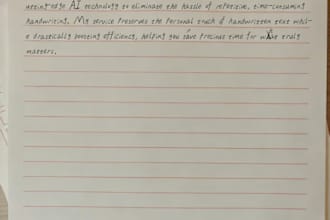 utting-edge AI technology to eliminate the hassle of repetitive, time-consuming
handwriting. My service preserves the personal touch of handwritten text whil-
e drastically boosting efficiency, helping you save precious time for what truly
matters.